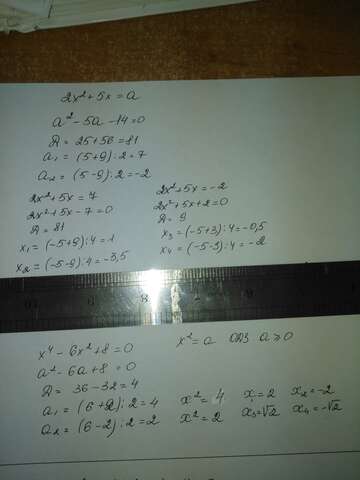 2x² + 5x = a
a² - 5a - 14 = 0
D = 25 + 56 = 81
a₁ = (5+9):2 = 7
a₂ = (5-9):2 = -2
2x² + 5x = 7
2x² + 5x - 7 = 0
D = 81
x₁ = (-5+9):4 = 1
x₂ = (-5-9):4 = -3,5
2x² + 5x = -2
2x² + 5x + 2 = 0
D = 9
x₃ = (-5+3):4 = -0,5
x₄ = (-5-3):4 = -2
6
x⁴ - 6x² + 8 = 0
x² = a ОДЗ a ⩾ 0
a² - 6a + 8 = 0
D = 36 - 32 = 4
a₁ = (6+2):2 = 4
x² = 4
x₁ = 2
x₂ = -2
a₂ = (6-2):2 = 2
x² = 2
x₃ = √2
x₄ = -√2